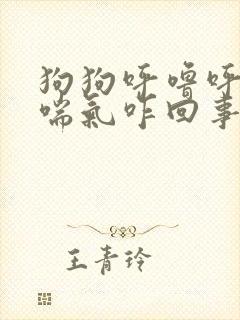 狗狗呼噜呼
喘氣咋回事
王青玲